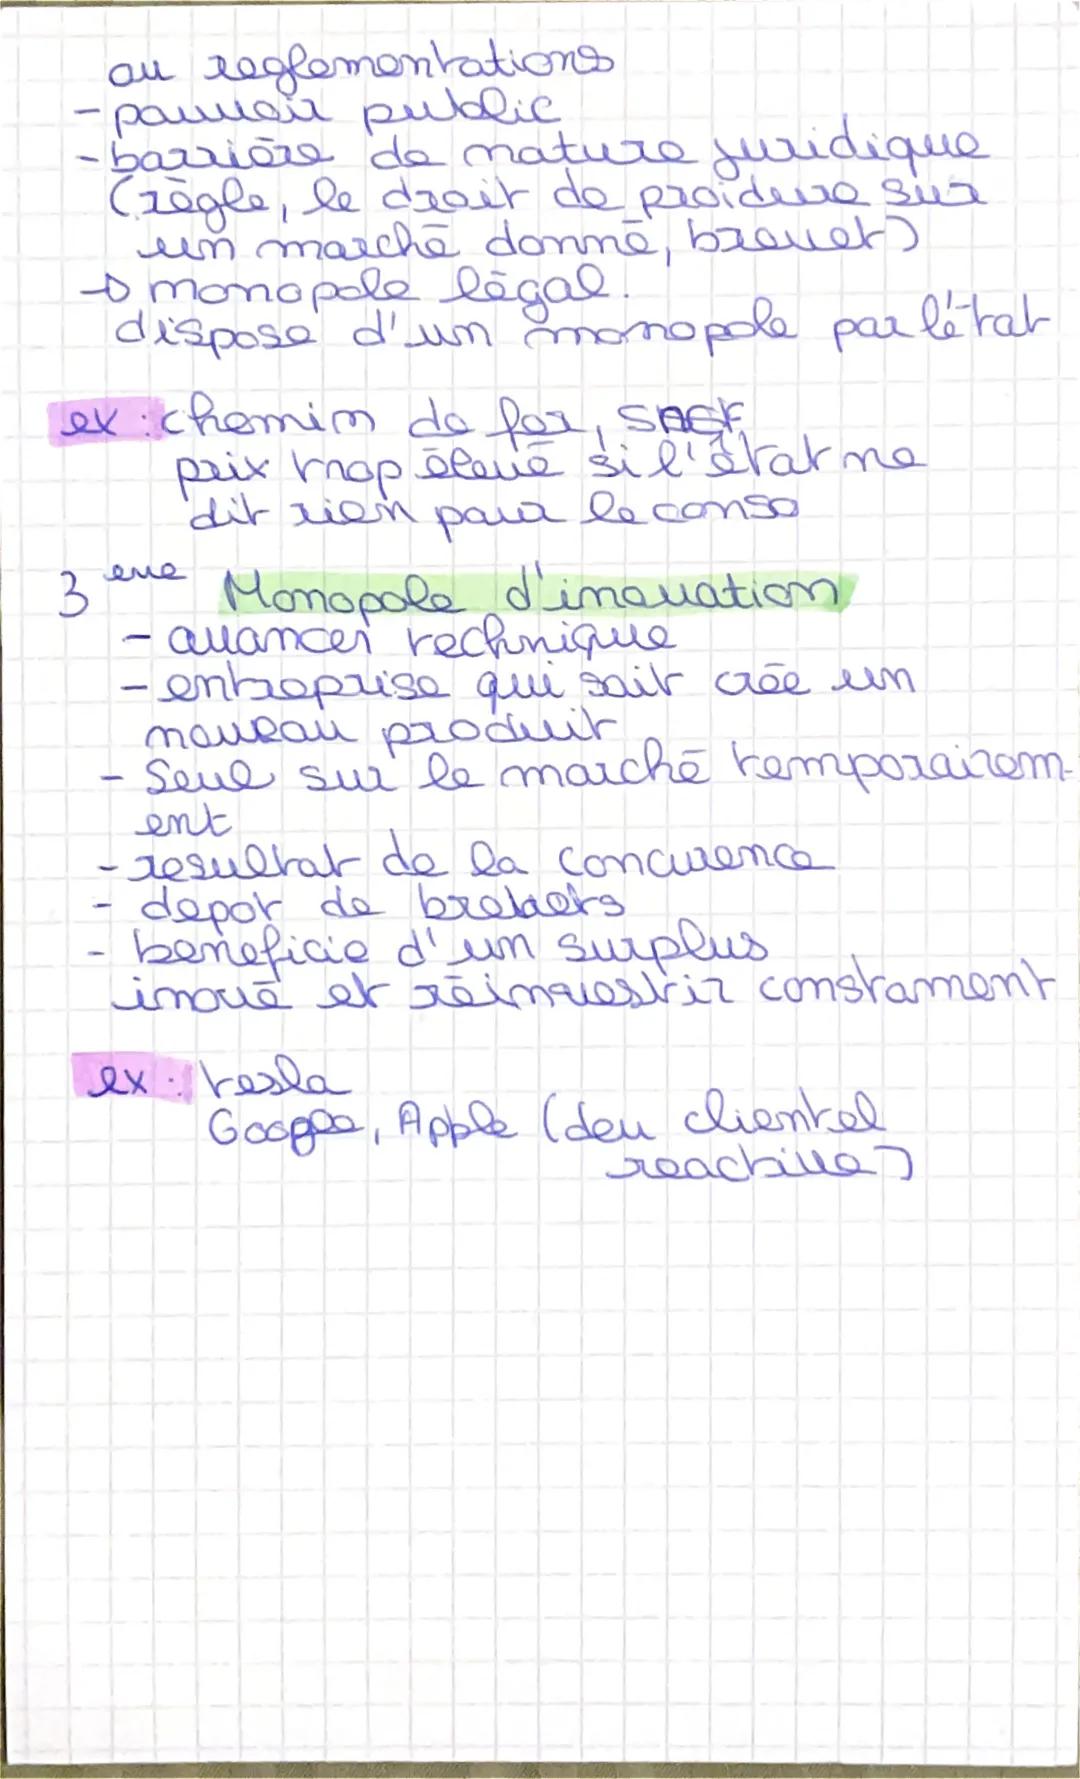 au reglementations
- pouvoir public
- barrière de nature juridique
(règle, le droit de proidure sur
un marché donné, brevet)
→ monopole légal.
dispose d'un monopole par l'état
ex : chemin de fer, SNCF
prix trop élevé si l'état ne
dit rien pour le conso
3 eme Monopole d'inovation
- avancer technique
- entreprise qui sait crée un
nouveau produit
- Seul sur le marché temporairem-
ent
- resultat de la concurence
- depot de brevets
- beneficie d'un surplus
inové et réinvestir constament
ex : tesla
Google, Apple (deu clientel
reactive)